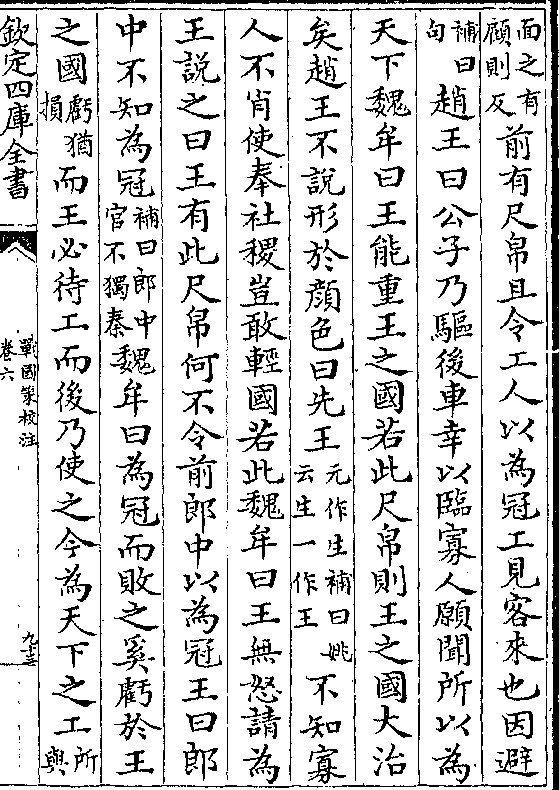 面之有
顧則反
前有尺帛且令工人以為冠工見客來也因避
補曰
句
趙王曰公子乃驅後車幸以臨寡人願聞所以為
天下魏牟曰王能重王之國若此尺帛則王之國大治
矣趙王不說形於顔色曰先王
元作生補曰姚
云生一作王
不知寡
人不肖使奉社稷豈敢輕國若此魏牟曰王無怒請為
王說之曰王有此尺帛何不令前郎中以為冠王曰郎
中不知為冠
補曰郎中
官不獨秦
魏牟曰為冠而敗之奚虧於王
之國
虧猶
損
而王必待工而後乃使之今為天下之工
所
與
欽定四庫全書
戰國策校注
卷六
九十三